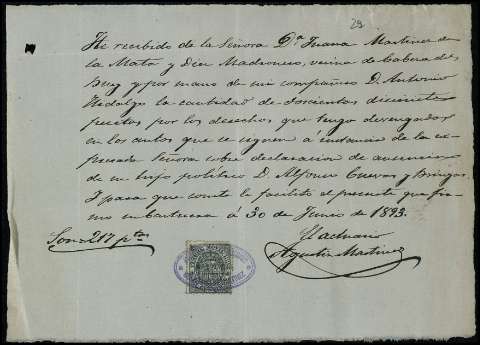 29
He recibido de la Señora Dª Juana Martinez de
la Mata y Diez Madroñero, vecina de Cabeza del
Buey y por mano de mi compañero D. Antonio
Hidalgo la cantidad de doscientas diecisiete
pesetas por los derechos que tengo devengados
en los autos que se siguen á instancia de la ex-
presada Señora sobre declaracion de ausencia
de su hijo politico D. Alfonso Cuevas y
Y para que conste le facilito el presente que fir-
mo en á 30 de Junio de 1893.
Son=217 ptas
El actuario
Agustin Martinez